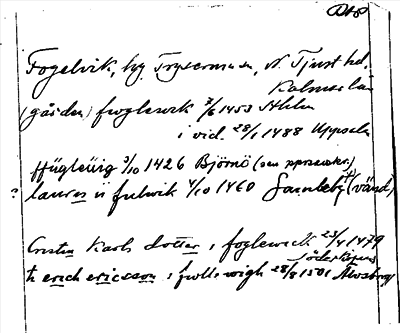 Fogelvik, hg Tryserum sn, N. Tjust hd.
Kalmar län
(gården) fwglewik 7/6 1453 Sthlm
i vid. 28/1 1488 Uppsala
ffügleüig 3/10 1426 Björnö (
? laures ü fulwik 4/10 1460 Gamleby (värd)
Cristin Karls dotter i foglewick 23/4 1479
Söderköping
h erich ericsson i fwllewigh 28/8 1501